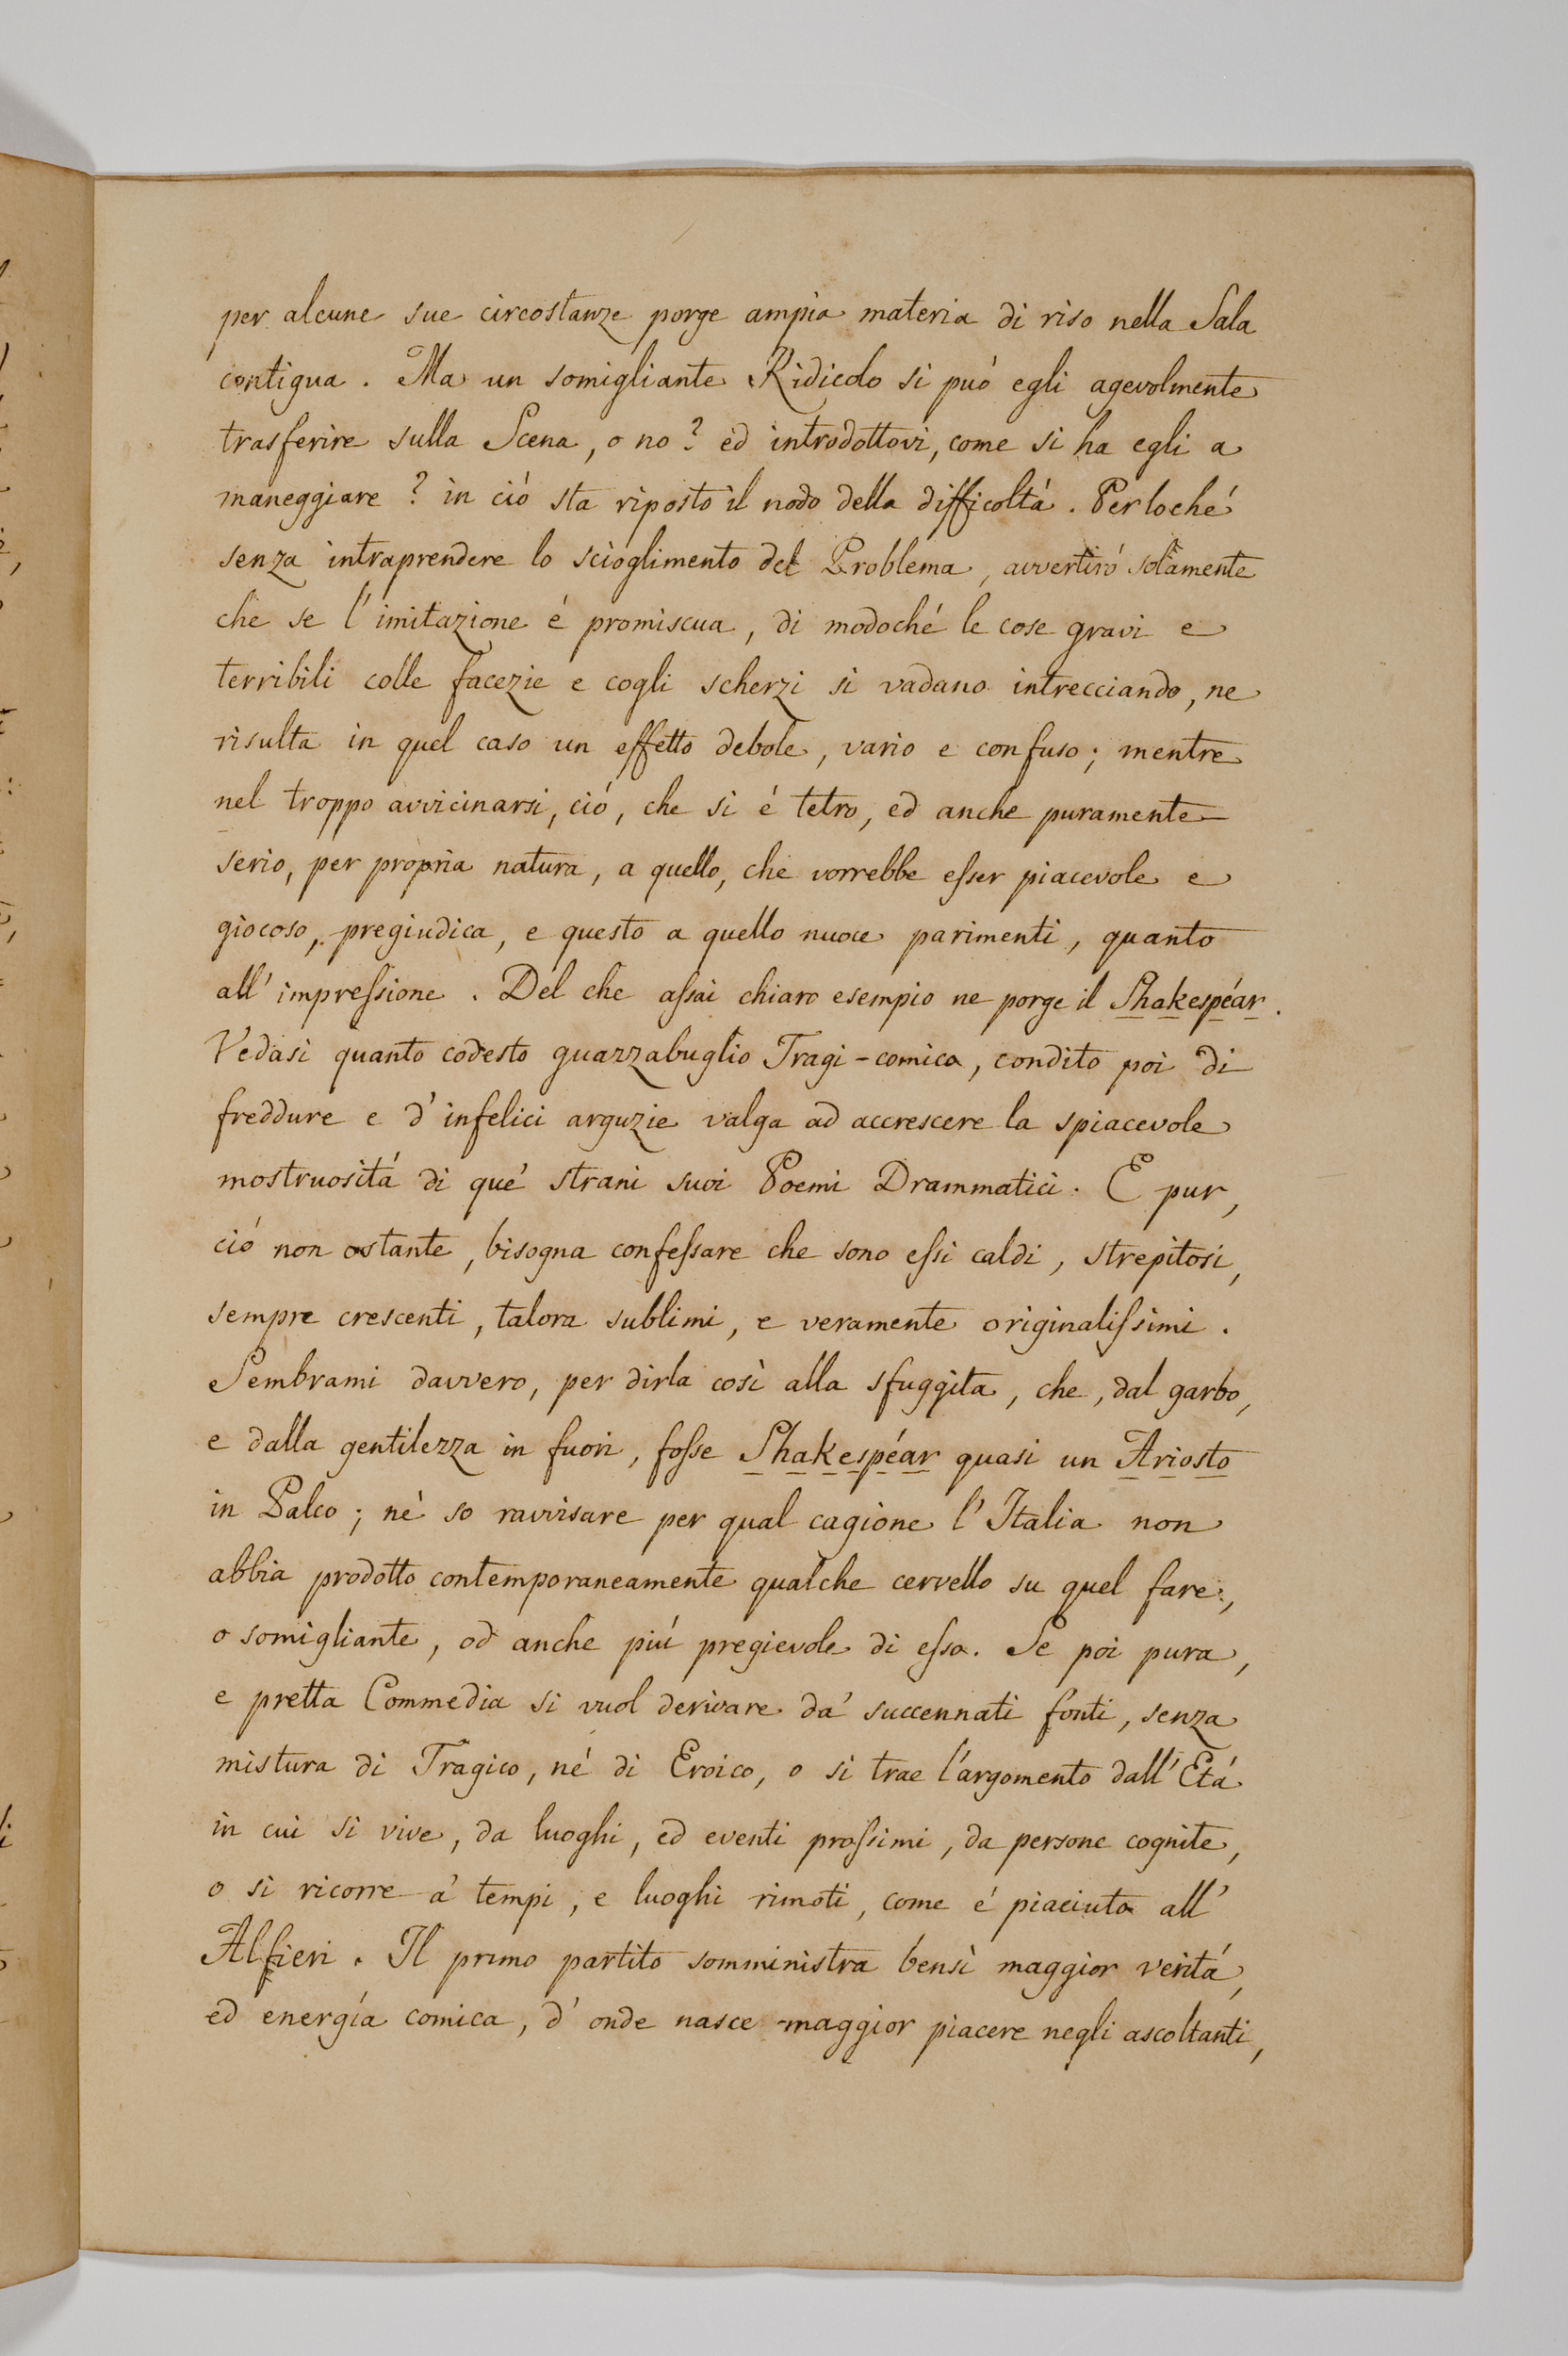 per alcune sue circostanze porge ampia materia di riso nella Sala
contigua. Ma un somigliante Ridicolo si può egli agevolmente
trasferire sulla Scena, o no? ed introdottovi, come si ha egli a
maneggiare? in ció sta riposto il nodo della difficoltá. Perloché
senza intraprendere lo scioglimento del Problema, avvertiró solamente
che se l'imitazione é promiscua, di modoché le cose gravi e
terribili colle facezie e cogli scherzi si vadano intrecciando, ne
risulta in quel caso un effetto debole, vario e confuso; mentre
nel troppo avvicinarsi, ció, che si é tetro, ed anche puramente
serio, per propria natura, a quello, che vorrebbe eſser piacevole e
giocoso, pregiudica, e questo a quello nuoce parimenti, quanto
all'impreſsione. Del che aſsai chiaro esempio ne porge il Shakespéar.
Vedasi quanto codesto guazzabuglio Tragi-comico, condito poi di
freddure e d'infelici arguzie valga ad accrescere la spiacevole
mostruositá di que' strani suoi Poemi Drammatici. E pur,
ció non ostante, bisogna confeſsare che sono eſsi caldi, strepitosi,
sempre crescenti, talora sublimi, e veramente originaliſsimi.
Sembrami davvero, per dirla così alla sfuggita, che, dal garbo,
e dalla gentilezza in fuori, foſse Shakespéar quasi un Ariosto
in Palco; nè so ravvisare per qual cagione l'Italia non
abbia prodotto contemporaneamente qualche cervello su quel fare,
o somigliante, od anche piú pregievole di eſso. Se poi pura,
e pretta Commedia si vuol derivare da' succennati fonti, senza
mistura di Tragico, né di Eroico, o si trae l'argomento dall'Etá
in cui si vive, da luoghi, ed eventi proſsimi, da persone cognite,
o si ricorre a' tempi, e luoghi rimoti, come é piaciuto all'
Alfieri. Il primo partito somministra bensì maggior veritá,
ed energía comica, d'onde nasce maggior piacere negli ascoltanti,